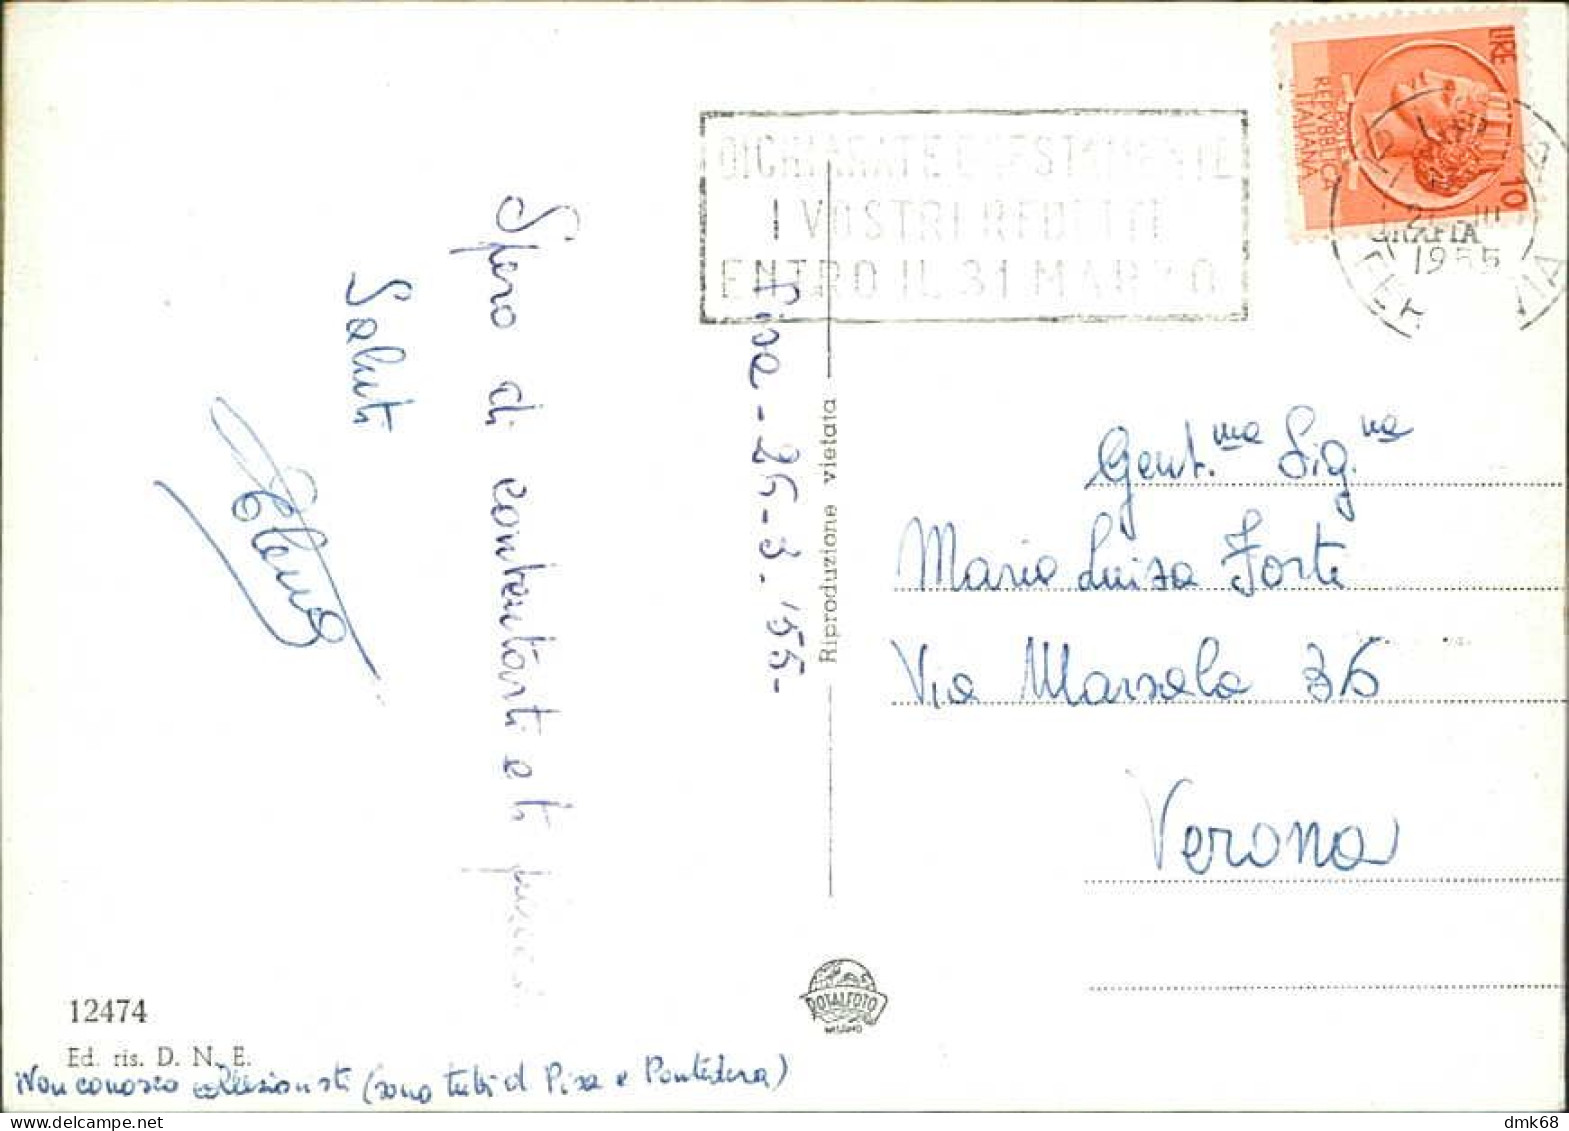 Spero di contentarti e ti
Saluti
Elena
Pisa - 26-3-'55-
Riproduzione vietata
DICHIARATE ONESTAMENTE
I VOSTRI REDDITI
ENTRO IL 31 MARZO
LIRE 10
REPVBBLICA
ITALIANA
1955
FERROVIA
Gent.ma Sig.na
Maria Luisa Forti
Via Marsala 36
Verona
ROTALFOTO
MILANO
12474
Ed. ris. D. N. E.
Non conosco collezionisti (sono tutti di Pisa e Pontedera)
dmk68